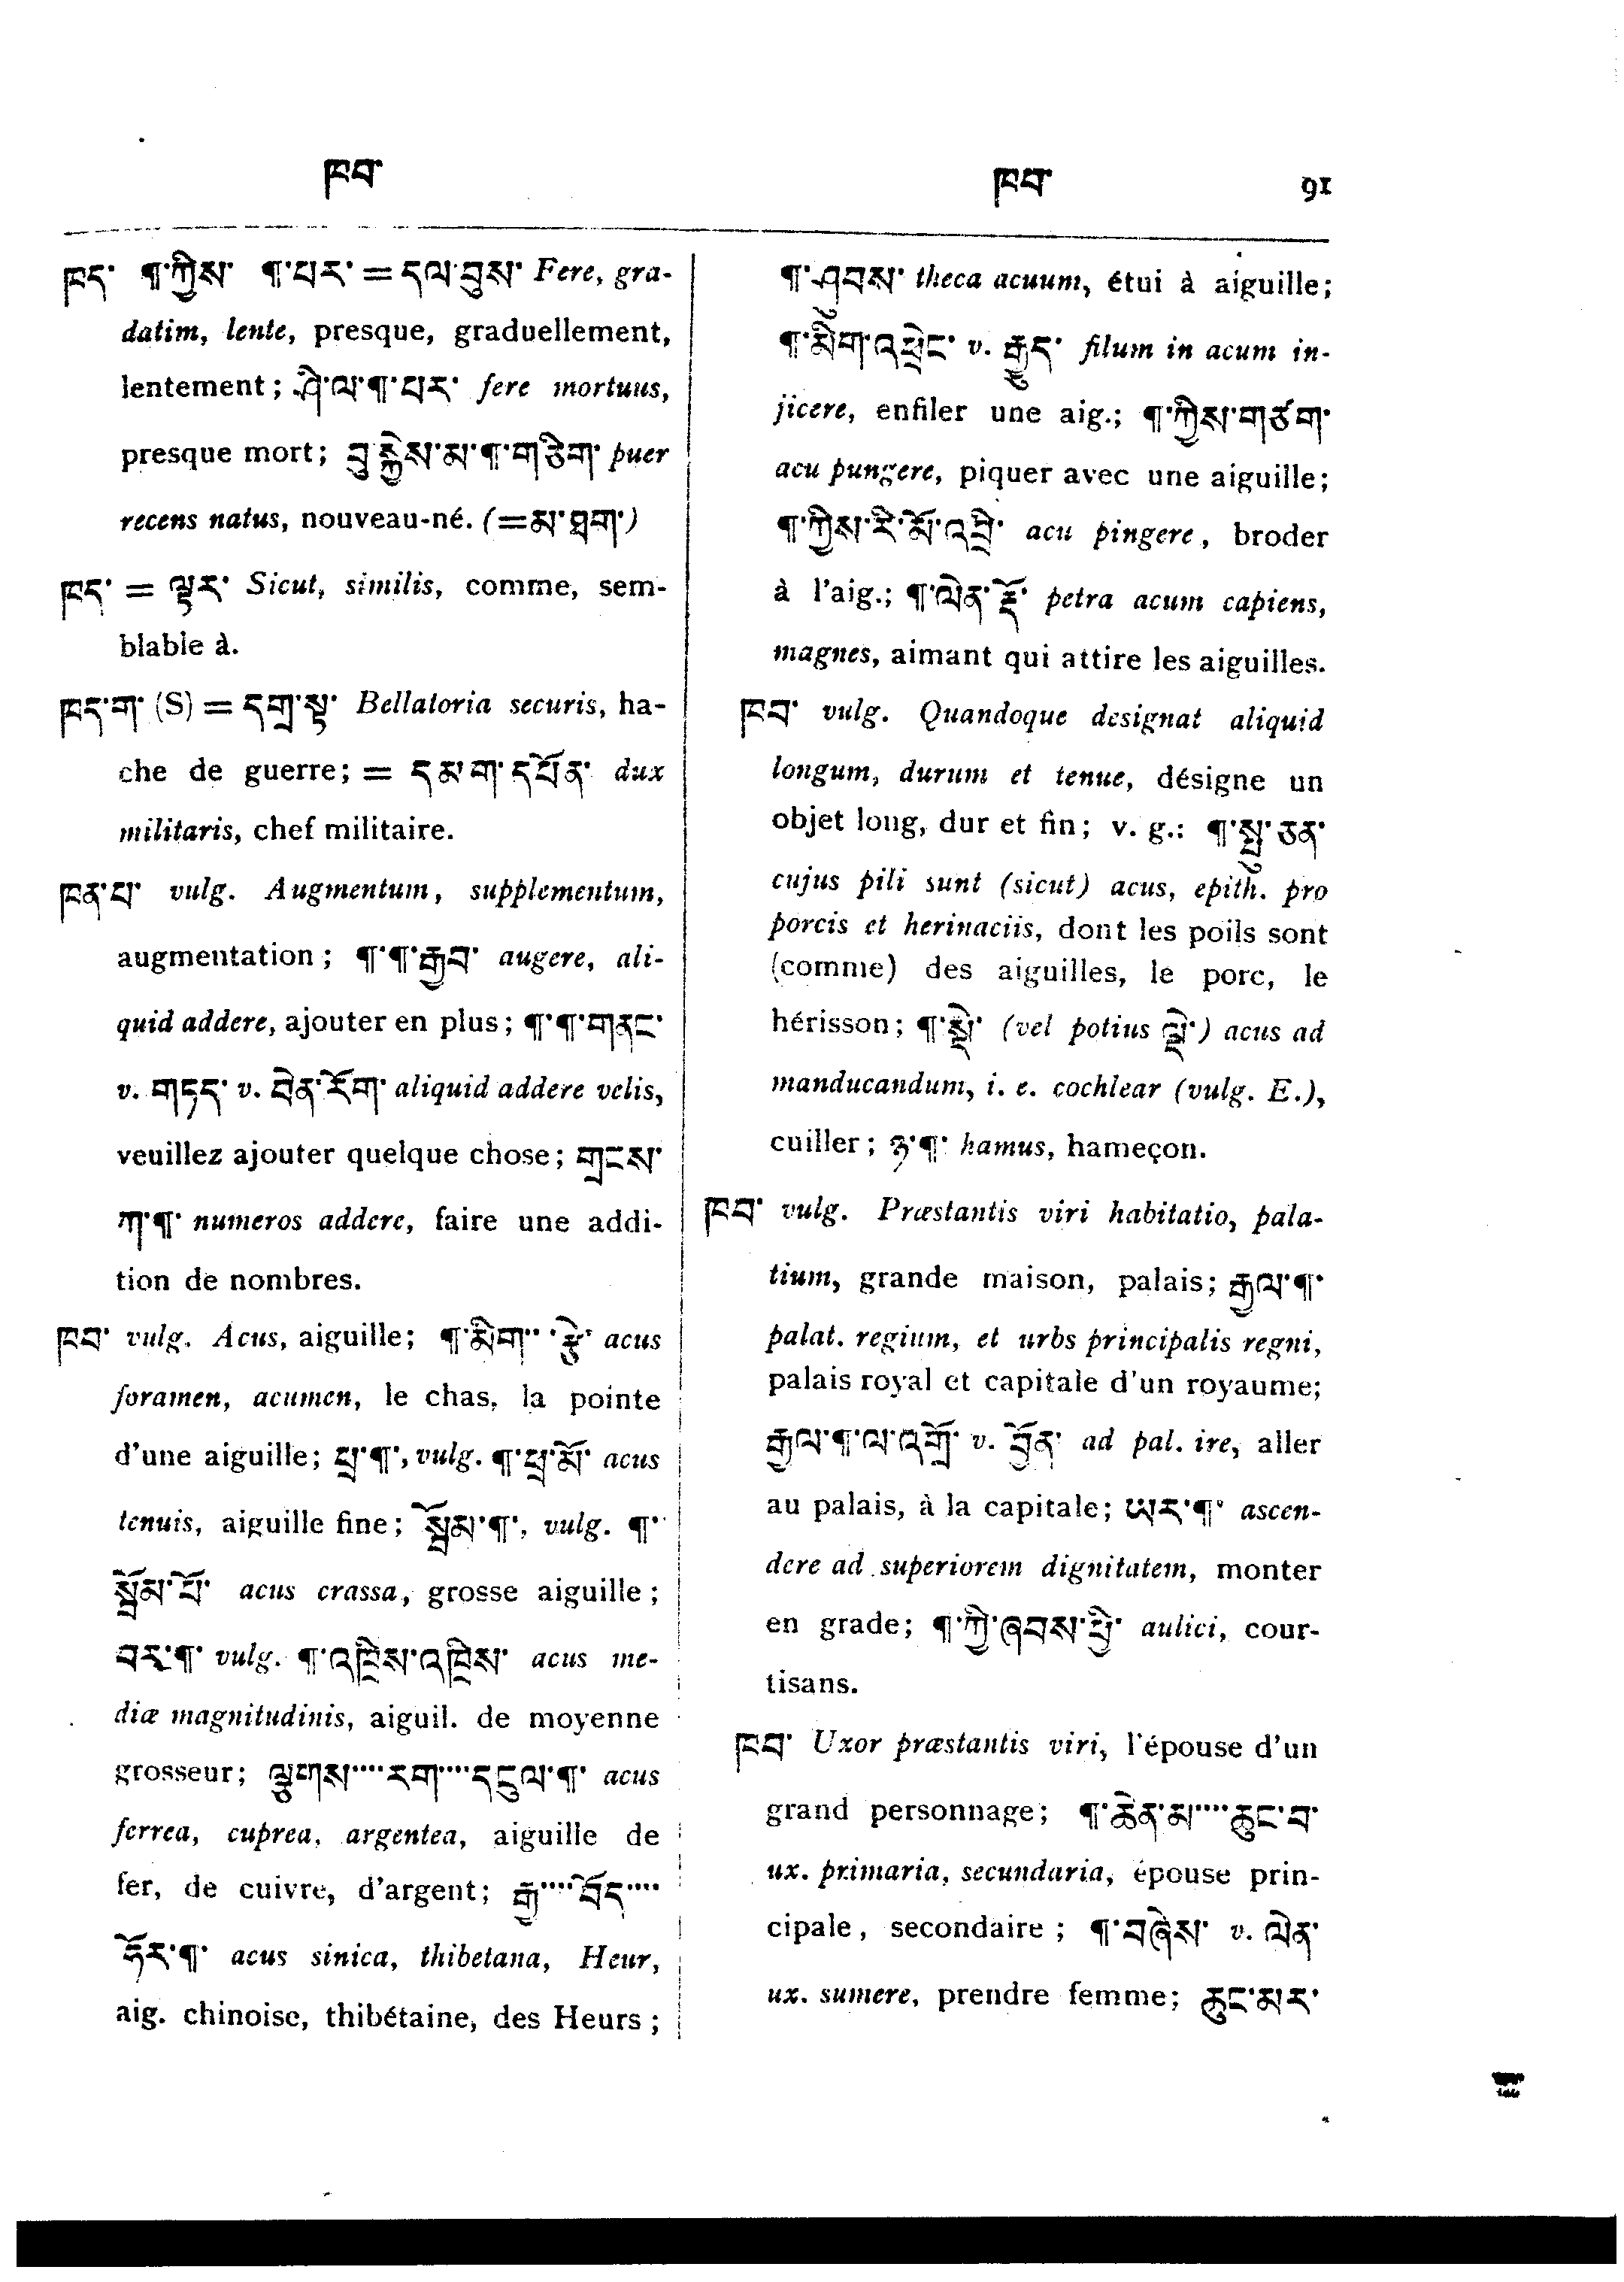 ཁབ་
ཁབ་ 91
ཁད་ ¶་ཀྱིས་ ¶་པར་ = དལ་བུས་ Fere, gra-
datim, lente, presque, graduellement,
lentement; ཤི་ལ་¶་པར་ fere mortuus,
presque mort; བུ་སྐྱེས་མ་¶་གཅིག་ puer
recens natus, nouveau-né. (=མ་ཐག་)
ཁད་ = ལྟར་ Sicut, similis, comme, sem-
blable à.
ཁད་ག་ (S) = དགྲ་སྟ་ Bellatoria securis, ha-
che de guerre; = དམག་དཔོན་ dux
militaris, chef militaire.
ཁན་པ་ vulg. Augmentum, supplementum,
augmentation; ¶་¶་རྒྱབ་ augere, ali-
quid addere, ajouter en plus; ¶་¶་གནང་
v. གཏད་ v. བྲེན་རོག་ aliquid addere velis,
veuillez ajouter quelque chose; གྲངས་
ཀ་¶་ numeros addere, faire une addi-
tion de nombres.
ཁབ་ vulg. Acus, aiguille; ¶་མིག་་་་རྩེ་ acus
foramen, acumen, le chas, la pointe
d'une aiguille; ཕྲ་¶་, vulg. ¶་ཕྲ་མོ་ acus
tenuis, aiguille fine; སྦོམ་¶་, vulg. ¶་
སྦོམ་པོ་ acus crassa, grosse aiguille;
བར་¶་ vulg. ¶་འཁྲིས་འཁྲིས་ acus me-
diæ magnitudinis, aiguil. de moyenne
grosseur; ལྕགས་་་་རག་་་་དངུལ་¶་ acus
ferrea, cuprea, argentea, aiguille de
fer, de cuivre, d'argent; རྒྱ་་་་བོད་་་་
ཧོར་¶་ acus sinica, thibetana, Heur,
aig. chinoise, thibétaine, des Heurs;
¶་ཤུབས་ theca acuum, étui à aiguille;
¶་མིག་འཕྲེང་ v. རྒྱུད་ filum in acum in-
jicere, enfiler une aig.; ¶་ཀྱིས་གཙག་
acu pungere, piquer avec une aiguille;
¶་ཀྱིས་རི་མོ་འབྲི་ acu pingere, broder
à l'aig.; ¶་ལེན་རྡོ་ petra acum capiens,
magnes, aimant qui attire les aiguilles.
ཁབ་ vulg. Quandoque designat aliquid
longum, durum et tenue, désigne un
objet long, dur et fin; v. g.: ¶་སྤུ་ཅན་
cujus pili sunt (sicut) acus, epith. pro
porcis et herinaciis, dont les poils sont
(comme) des aiguilles, le porc, le
hérisson; ¶་ (vel potius ) acus ad
manducandum, i. e. cochlear (vulg. E.),
cuiller; ཉ་¶་ hamus, hameçon.
ཁབ་ vulg. Præstantis viri habitatio, pala-
tium, grande maison, palais; རྒྱལ་¶་
palat. regium, et urbs principalis regni,
palais royal et capitale d'un royaume;
རྒྱལ་¶་ལ་འགྲོ་ v. བྱོན་ ad pal. ire, aller
au palais, à la capitale; ཡར་¶་ ascen-
dere ad superiorem dignitatem, monter
en grade; ¶་ཀྱི་ཞབས་ཕྱི་ aulici, cour-
tisans.
ཁབ་ Uxor præstantis viri, l'épouse d'un
grand personnage; ¶་ཆེན་མ་་་་ཆུང་བ་
ux. primaria, secundaria, épouse prin-
cipale, secondaire; ¶་བཞེས་ v. ལེན་
ux. sumere, prendre femme; ཆུང་མར་